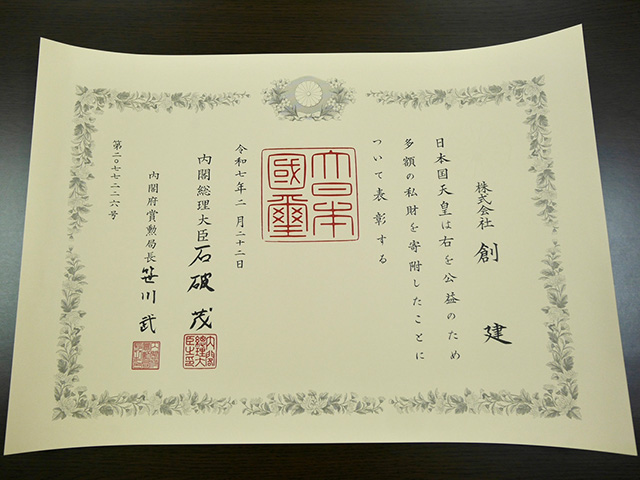 株式会社 創建
日本国天皇は右を公益のため
多額の私財を寄附したことに
ついて表彰する
大日本
國璽
令和七年二月二十二日
内閣総理大臣 石破茂
内閣総理大臣之印
内閣府賞勲局長 笹川武
第二〇七七二二六号